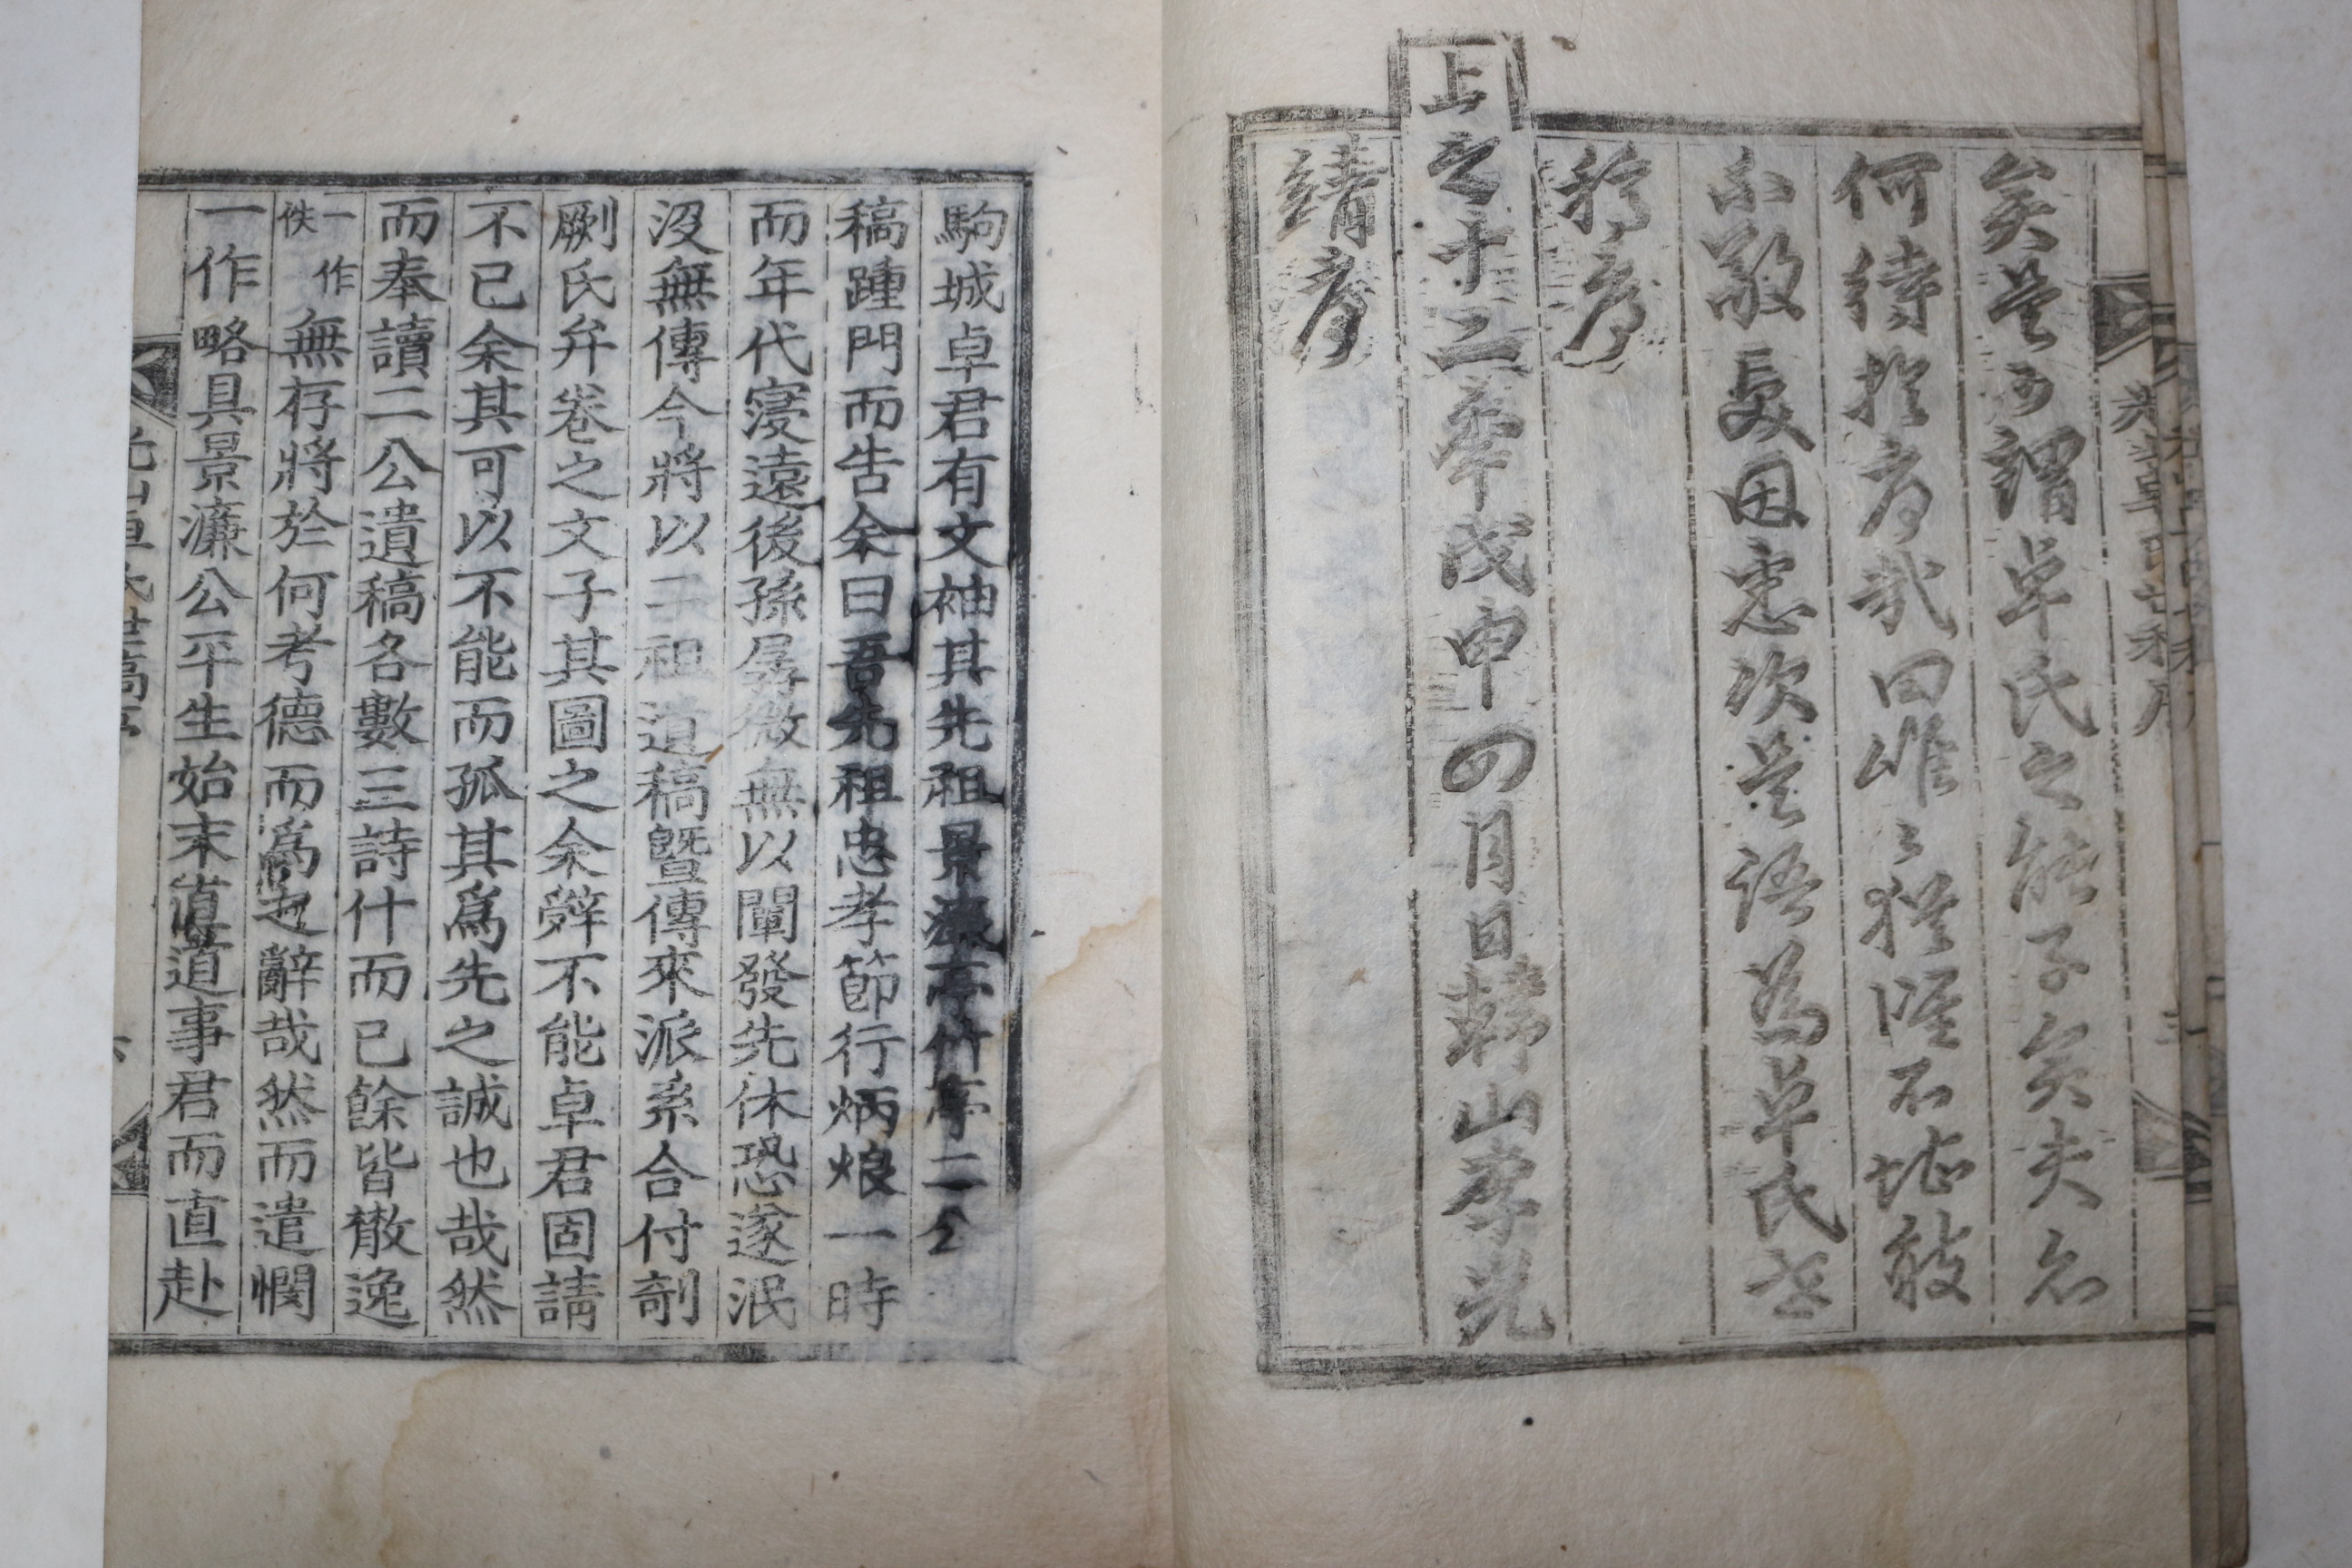 矣是可謂卓氏之能子矣夫名
何待於序哉曰唯唯猶陋不敢
不敬受因書次是語為卓氏世
稿序
上之十二年戊申四月日韓山李光
靖序
駒城卓君有文袖其先祖景濂亭竹亭二公
稿踵門而告余曰吾先祖忠孝節行炳烺一時
而年代寖遠後孫孱微無以闡發先休恐遂泯
沒無傳今將以二祖遺稿曁傳來派系合付剞
劂氏弁卷之文子其圖之余辤不能卓君固請
不已余其可以不能而孤其爲先之誠也哉然
而奉讀二公遺稿各數三詩什而已餘皆散逸
一作佚無存將於何考德而爲之辭哉然而遣憫
一作略具景濂公平生始末直道事君而直赴
光山卓氏世稿序